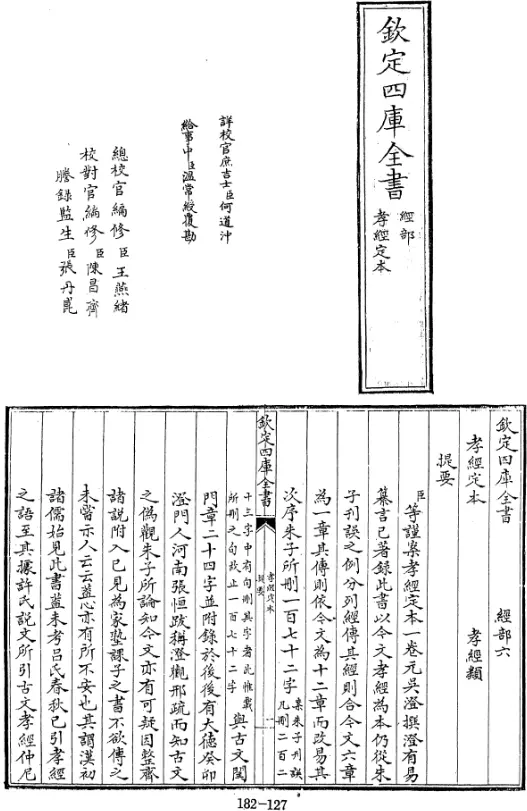 欽定四庫全書
經部
孝經定本
詳校官庶吉士臣何道沖
給事中臣溫常綬覆勘
總校官編修臣王燕緒
校對官編修臣陳昌齊
謄錄監生臣張丹崑
欽定四庫全書　經部六
孝經定本　孝經類
提要
臣等謹案孝經定本一卷元吳澄撰澄有易
纂言已著錄此書以今文孝經為本仍從朱
子刊誤之例分列經傳其經則合今文六章
為一章其傳則依今文為十二章而改易其
次序朱子所刪一百七十二字案朱子刊誤
凡刪二百二
欽定四庫全書
孝經定本
提要
一
十三字中有句刪其字者此惟載
所刪之句故止一百七十二字與古文閨
門章二十四字並附錄於後後有大德癸卯
澄門人河南張恒跋稱澄觀邢疏而知古文
之偽觀朱子所論知今文亦有可疑因整齊
諸說附入已見為家塾課子之書不欲傳之
未嘗示人云云蓋心亦有所不安也其謂漢初
諸儒始見此書蓋未考呂氏春秋已引孝經
之語至其據許氏說文所引古文孝經仲尼
182-127